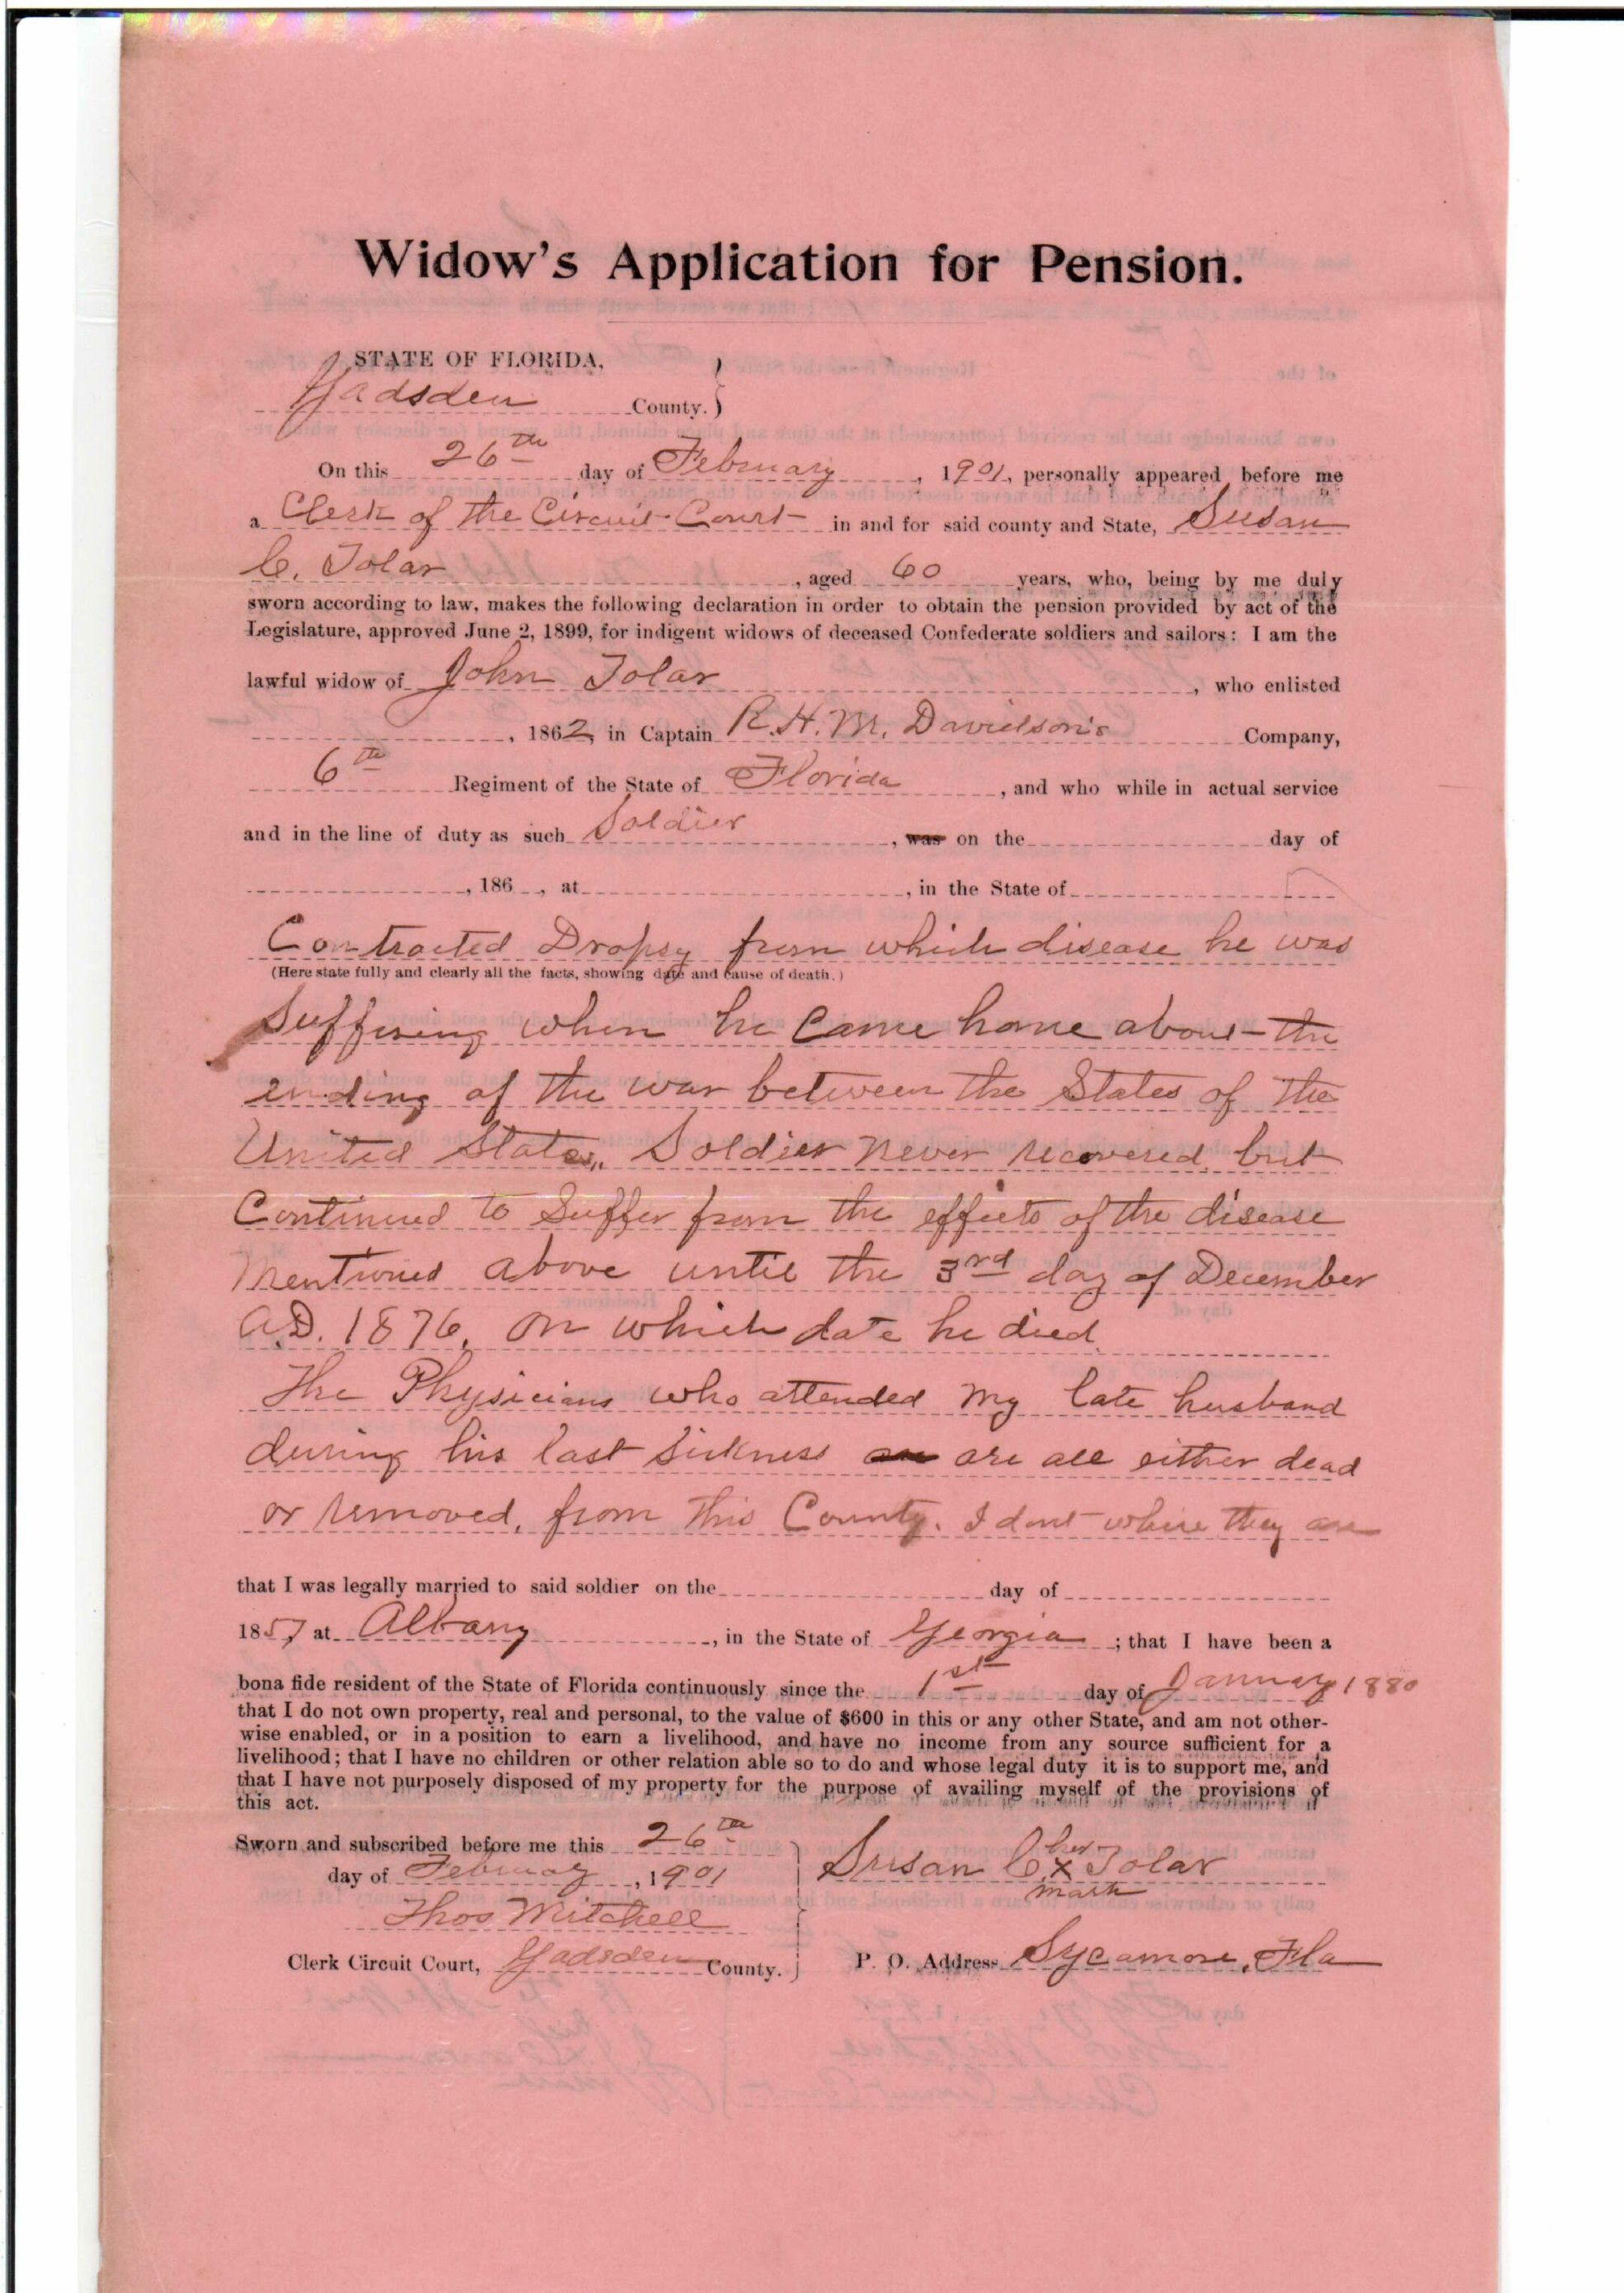 Widow's Application for Pension.
STATE OF FLORIDA,
Gadsden County.
On this 26th day of February, 1901, personally appeared before me
a Clerk of the Circuit Court in and for said county and State, Susan
C. Tolar, aged 60 years, who, being by me duly
sworn according to law, makes the following declaration in order to obtain the pension provided by act of the
Legislature, approved June 2, 1899, for indigent widows of deceased Confederate soldiers and sailors: I am the
lawful widow of John Tolar, who enlisted
, 1862, in Captain R. H. M. Davidson's Company,
6th Regiment of the State of Florida, and who while in actual service
and in the line of duty as such Soldier, was on the day of
, 186 , at , in the State of
Contracted Dropsy from which disease he was
(Here state fully and clearly all the facts, showing date and cause of death.)
Suffering when he Came home about the
ending of the war between the States of the
United States,, Soldier never recovered, but
Continued to Suffer from the effects of the disease
Mentioned above until the 3rd day of December
A.D. 1876, on which date he died.
The Physicians who attended My late husband
during his last Sickness are all either dead
or removed, from this County. I dont where they are
that I was legally married to said soldier on the day of
1857, at Albany, in the State of Georgia; that I have been a
bona fide resident of the State of Florida continuously since the 1st day of January 1880
that I do not own property, real and personal, to the value of $600 in this or any other State, and am not other-
wise enabled, or in a position to earn a livelihood, and have no income from any source sufficient for a
livelihood; that I have no children or other relation able so to do and whose legal duty it is to support me, and
that I have not purposely disposed of my property for the purpose of availing myself of the provisions of
this act.
Sworn and subscribed before me this 26th
day of February, 1901
Thos Mitchell
Clerk Circuit Court, Gadsden County.
Susan C. her x mark Tolar
P. O. Address Sycamore, Fla